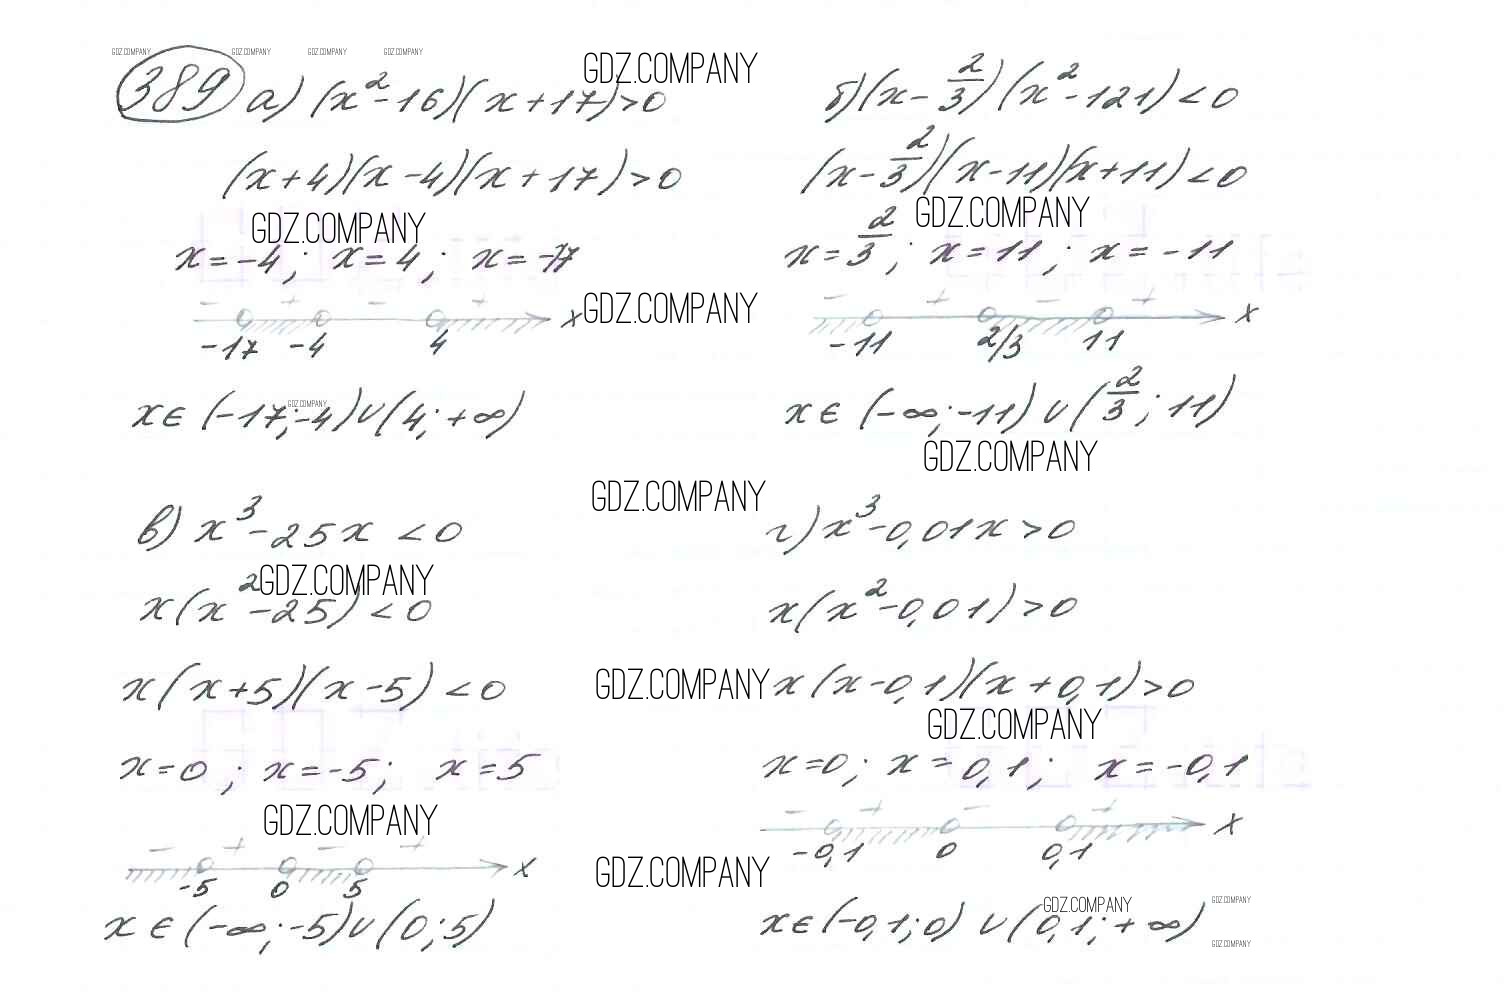 GDZ.COMPANY GDZ.COMPANY GDZ.COMPANY GDZ.COMPANY
GDZ.COMPANY
389 а) (x²-16)(x+17)>0
(x+4)(x-4)(x+17)>0
GDZ.COMPANY
x=-4; x=4; x=-17
- + - +
x
-17 -4 4
GDZ.COMPANY
x∈(-17;-4)∪(4;+∞)
GDZ.COMPANY
б)(x-2/3)(x²-121)<0
(x-2/3)(x-11)(x+11)<0
GDZ.COMPANY
x=2/3; x=11; x=-11
- + - +
x
-11 2/3 11
x∈(-∞;-11)∪(2/3;11)
GDZ.COMPANY
GDZ.COMPANY
в) x³-25x<0
GDZ.COMPANY
x(x²-25)<0
x(x+5)(x-5)<0
x=0; x=-5; x=5
GDZ.COMPANY
- + - +
x
-5 0 5
x∈(-∞;-5)∪(0;5)
г) x³-0,01x>0
x(x²-0,01)>0
GDZ.COMPANY
x(x-0,1)(x+0,1)>0
GDZ.COMPANY
x=0; x=0,1; x=-0,1
- + - +
x
-0,1 0 0,1
GDZ.COMPANY
GDZ.COMPANY GDZ.COMPANY
x∈(-0,1;0)∪(0,1;+∞)
GDZ.COMPANY